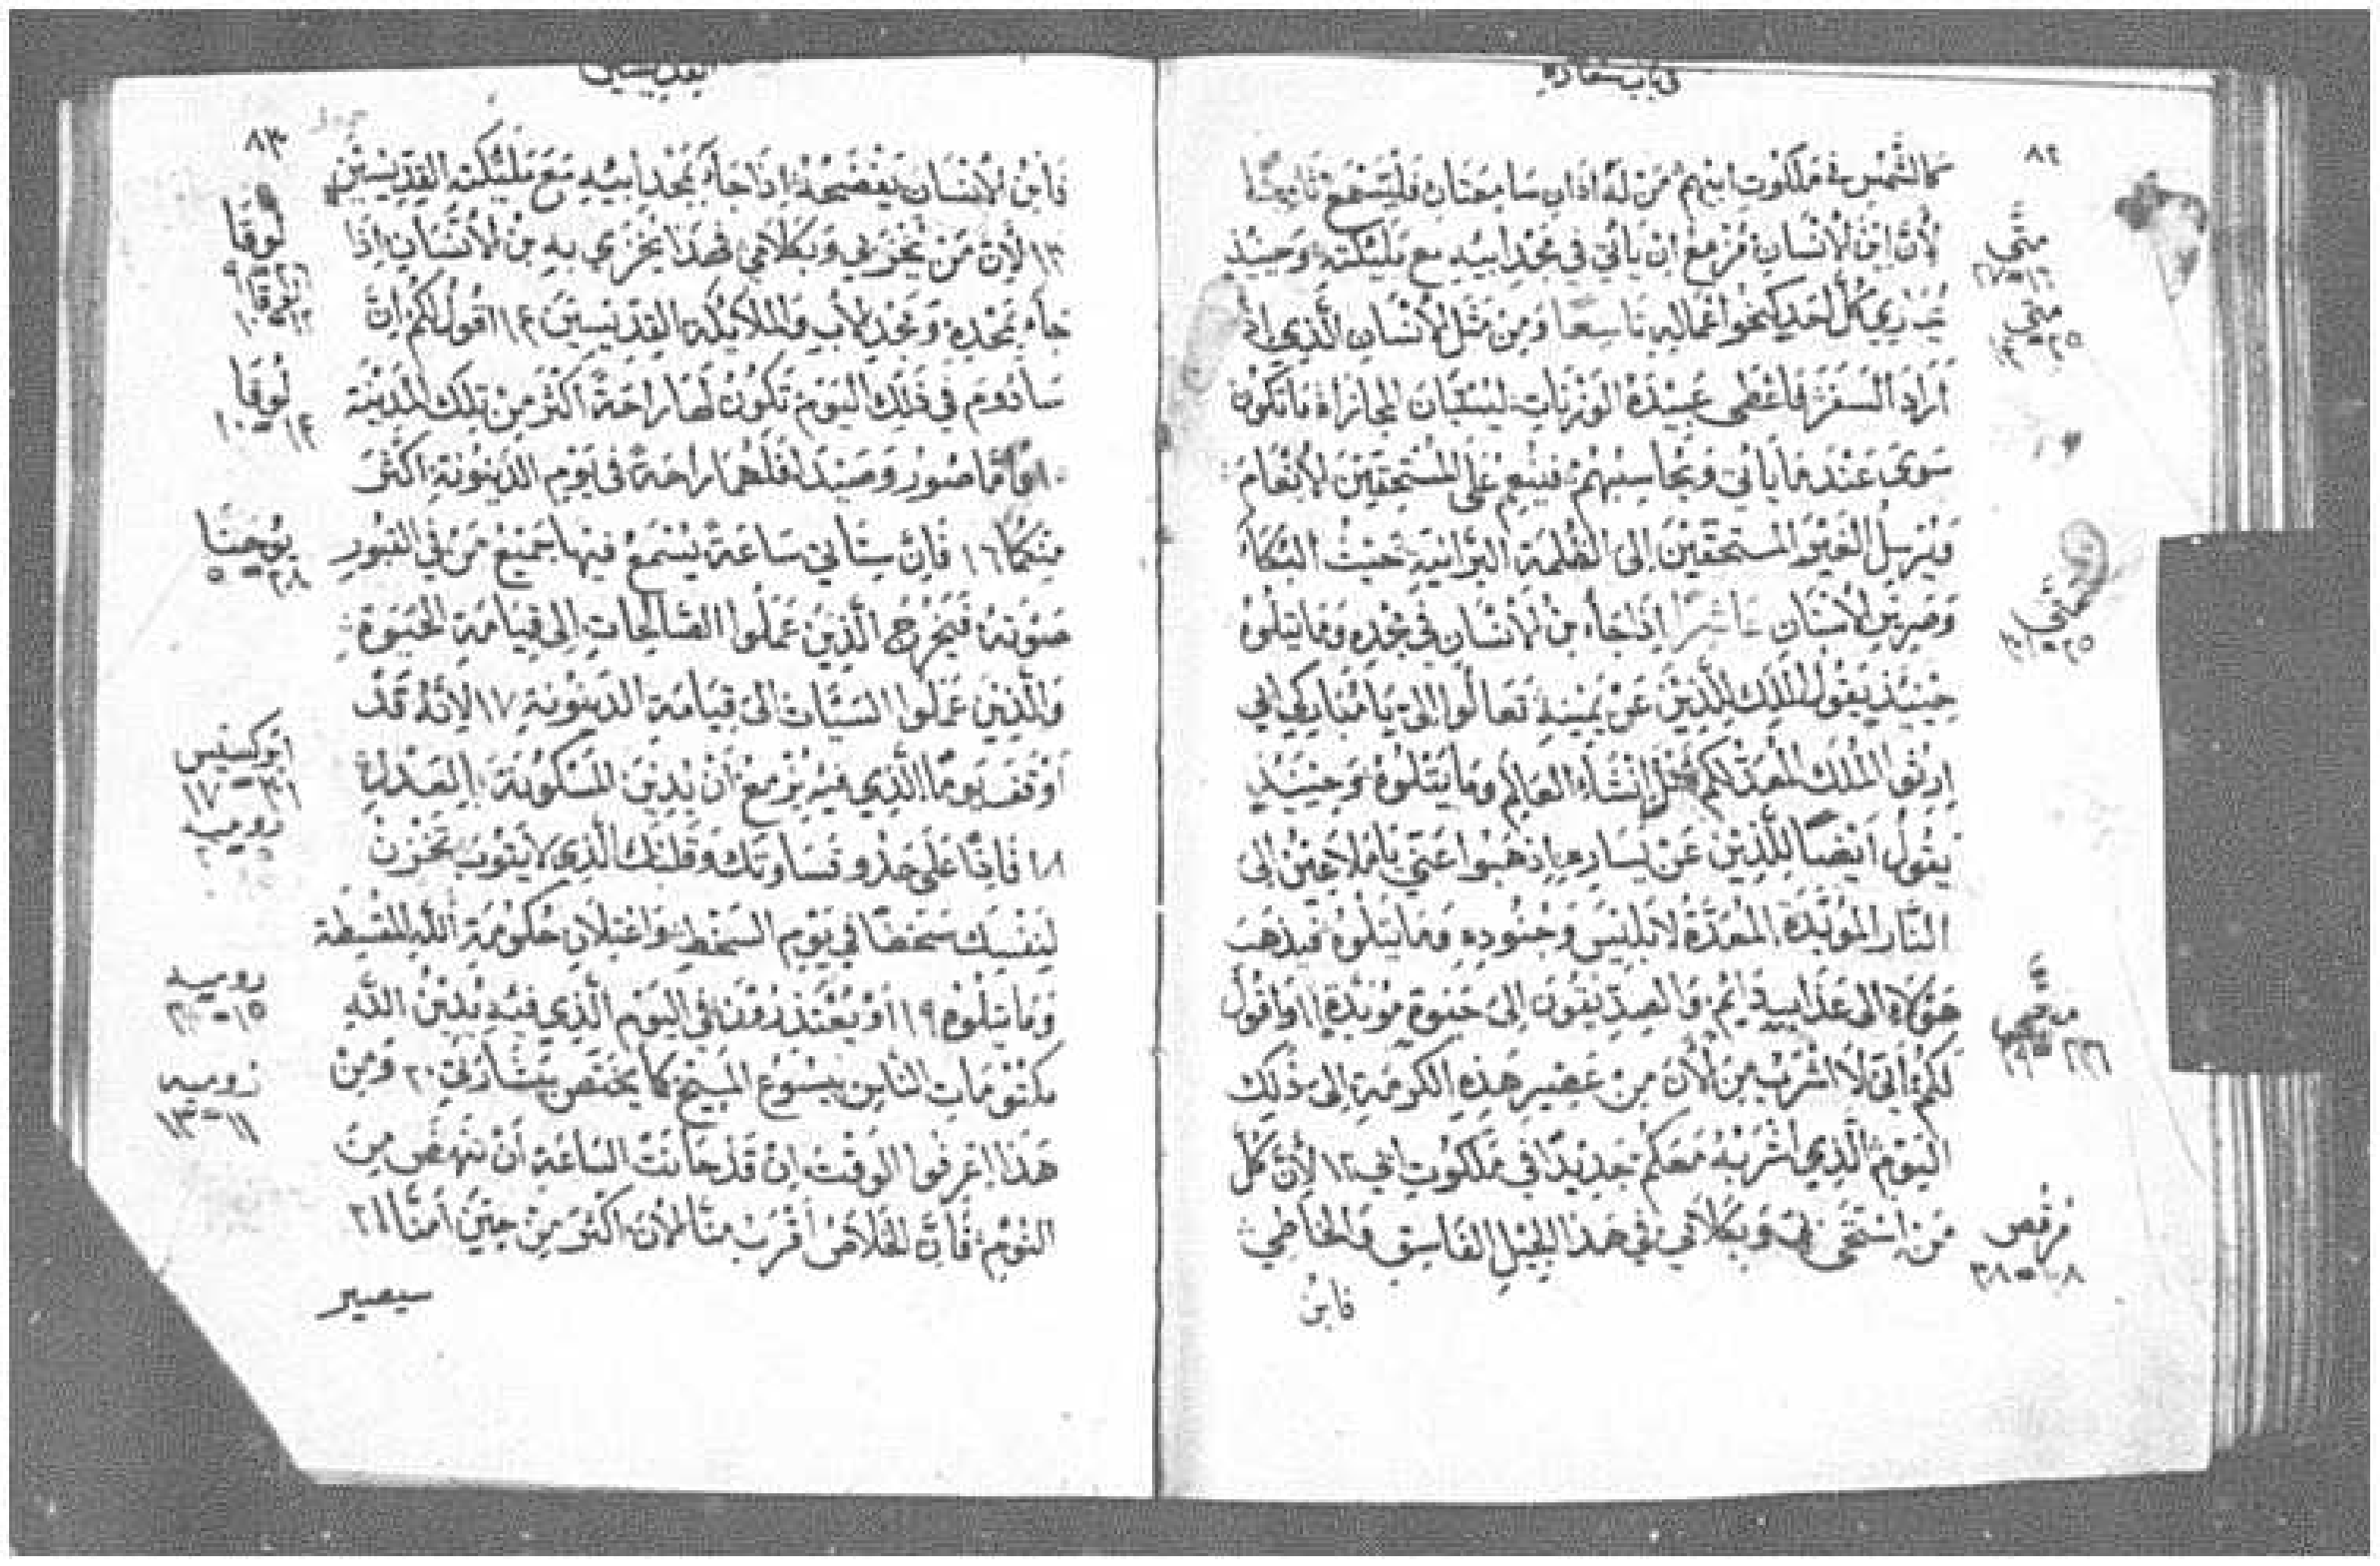 في باب سعادة
٨٢
كالشمس في ملكوت ابيهم من له اذان سامعتان فليسمع ثامنًا
متى
٢٧=١٦
لأن ابن الأنسان مزمع ان يأتي في مجد ابيه مع مليكته وحينيذٍ
يجازي كل احد كنحو اعماله تاسعا ومن مثل الأنسان الذي اذ
متى
اراد السفر فاعطى عبيده الوزنات ليستبان المجازاة ما تكون
سوى عند ما يأتي ويحاسبهم فينعم على المستحقين الأنعام
ويرسل الغير المستحقين الى الظلمة البرانية حيث البكاء
وصرير الأسنان عاشرًا اذا جاء بن الأنسان في مجده وما يتلوه
متى
حينيذ يقول الملك للذين عن يمينه تعالوا الي يا مباركي ابي
ارثوا الملك المعد لكم قبل إنشاء العالم وما يتلوه وحينيذ
يقول ايضًا للذين عن يساره اذهبوا عني يا ملاعين الى
النار المؤبدة المعدة لابليس وجنوده وما يتلوه فيذهب
هولاء الى عذاب دايم والصديقون الى حيوة موبدة ١١ واقول
لكم أني لا اشرب من الأن من عصير هذه الكرمة الى ذلك
اليوم الذي أشربه معكم جديدًا في ملكوت ابي ١٢ لأن كل
من إستحى بي وبكلامي في هذا الجيل الفاسق والخاطي
مرقص
٣٨=٨
فابن
القديسين
٨٣
فابن الأنسان يفضحه اذا جاء بمجد ابيه مع مليكته القديسين
لوقا
١٣ لأن من يخزى بي وبكلامي فهذا يخزي به بن الأنسان إذا
جاء بمجده ومجد الأب والملايكة القديسين ١٤ اقول لكم ان
لوقا
١٢=١٠
سادوم في ذلك اليوم تكون لها راحة اكثر من تلك المدينة
١٥ وأما صور وصيدا فلهما راحة في يوم الدينونة اكثر
منكما ١٦ فان ستأتي ساعة يسمع فيها جميع من في القبور
يوحنا
٢٨=٥
صوته فيخرج الذين عملوا الصالحات الى قيامة الحيوة
والذين عملوا السيات الى قيامة الدينونة ١٧ لانه قد
ابركسيس
٣١=١٧
اوقف يومًا الذي فيه يزمع أن يدين المسكونة بالعدل
روميه
١٨ فاما على حذو قساوتك وقلبك الذي لا يتوب تخزن
لنفسك سخطًا في يوم السخط واعتلان حكومة الله المقسطة
روميه
١٥=٢
وما يتلوه ١٩ او يعتذرون في اليوم الذي فيه يدين الله
مكتومات الناس بيسوع المسيح كما يختص بشارتي ٢٠ ومن
روميه
١١=١٣
هذا إعرفوا الوقت ان قد حانت الساعة أن ننهض من
النوم فأن الخلاص أقرب منا الأن اكثر من حين أمنا ٢١
سيصير